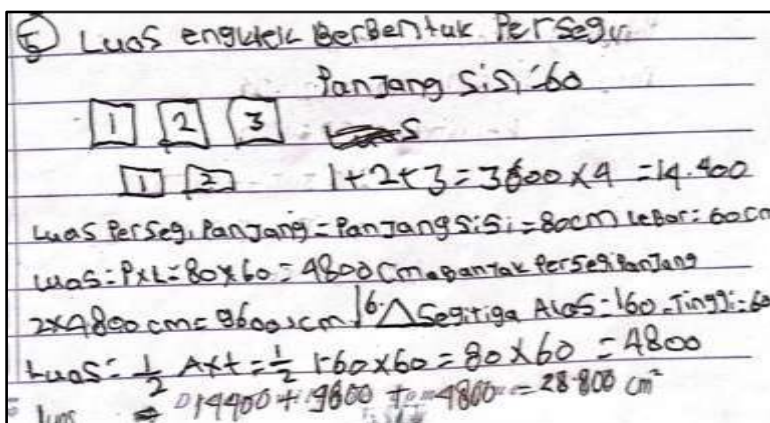 ⑤ Luas engklek Berbentuk Persegi
Panjang sisi = 60
1 2 3 s
1 2 1+2+3 = 3600 x 4 = 14.400
Luas Persegi Panjang = Panjang sisi = 80cm Lebar = 60cm
Luas = PxL = 80x60 = 4800 cm. Banyak Persegi Panjang
2x4800 cm = 9600 cm 6. △ Segitiga Alas = 160. Tinggi = 60
Luas = 1/2 Axt = 1/2 160x60 = 80x60 = 4800
Luas ⇒ 14400 + 9600 + 4800 = 28.800 cm²